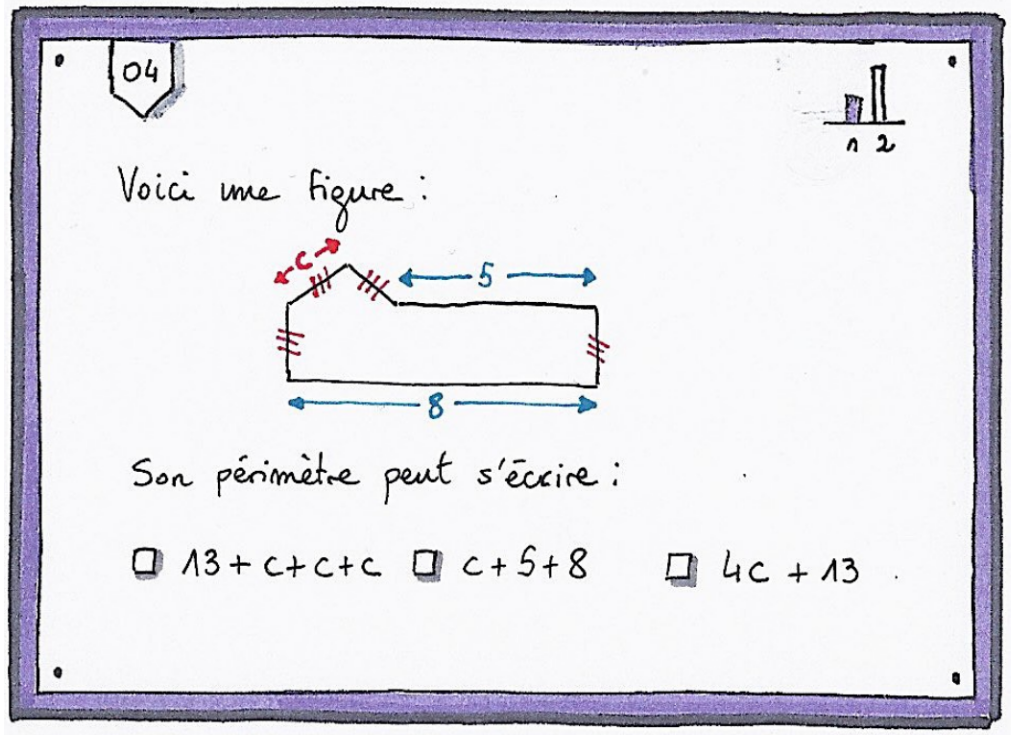 04
1 2
Voici une figure :
c
5
8
Son périmètre peut s'écrire :
13 + c + c + c c + 5 + 8 4c + 13